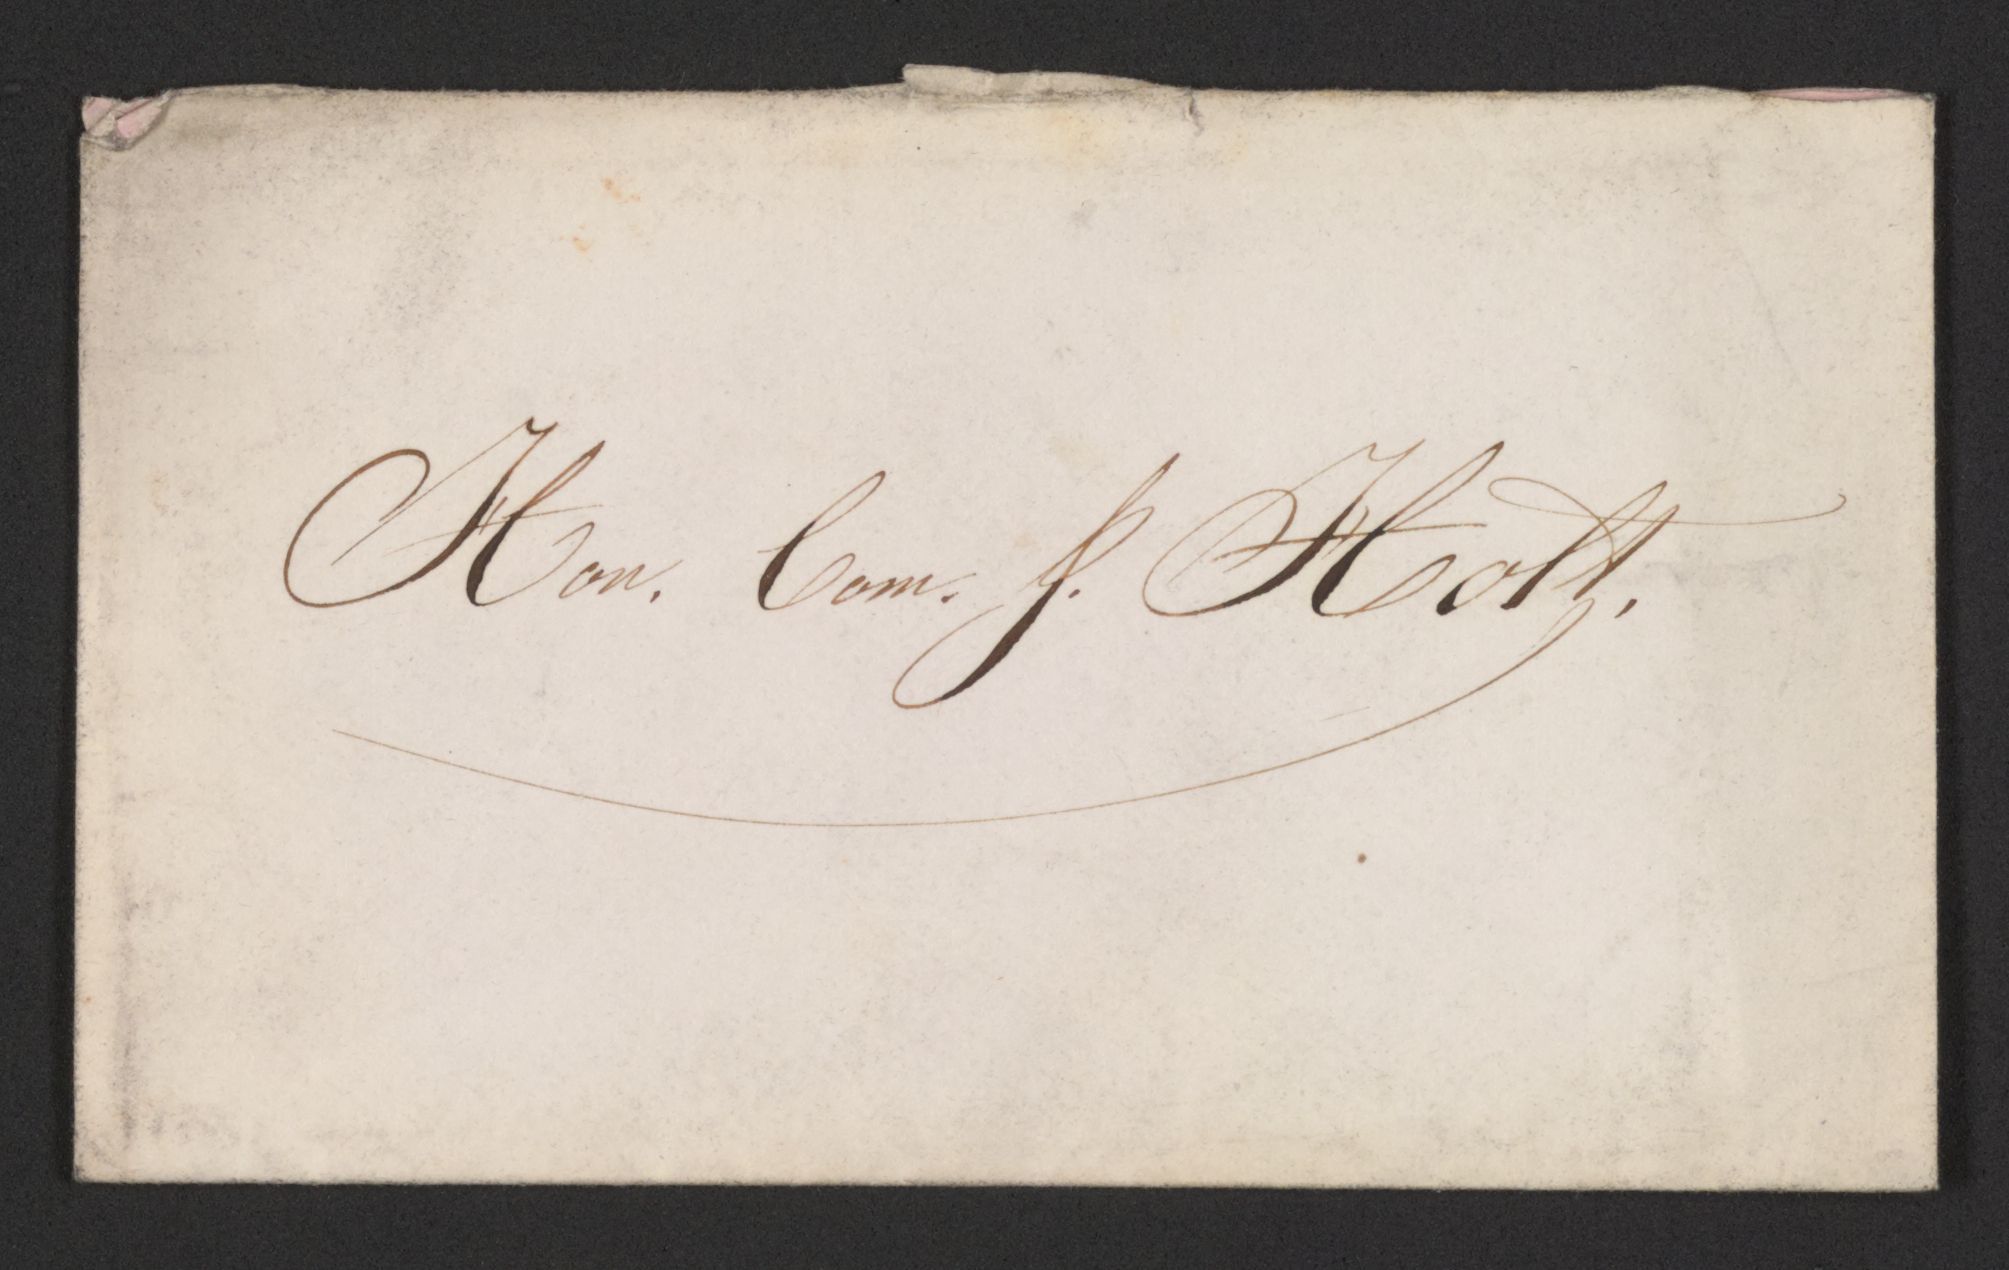 Hon. Com. J. Holt.